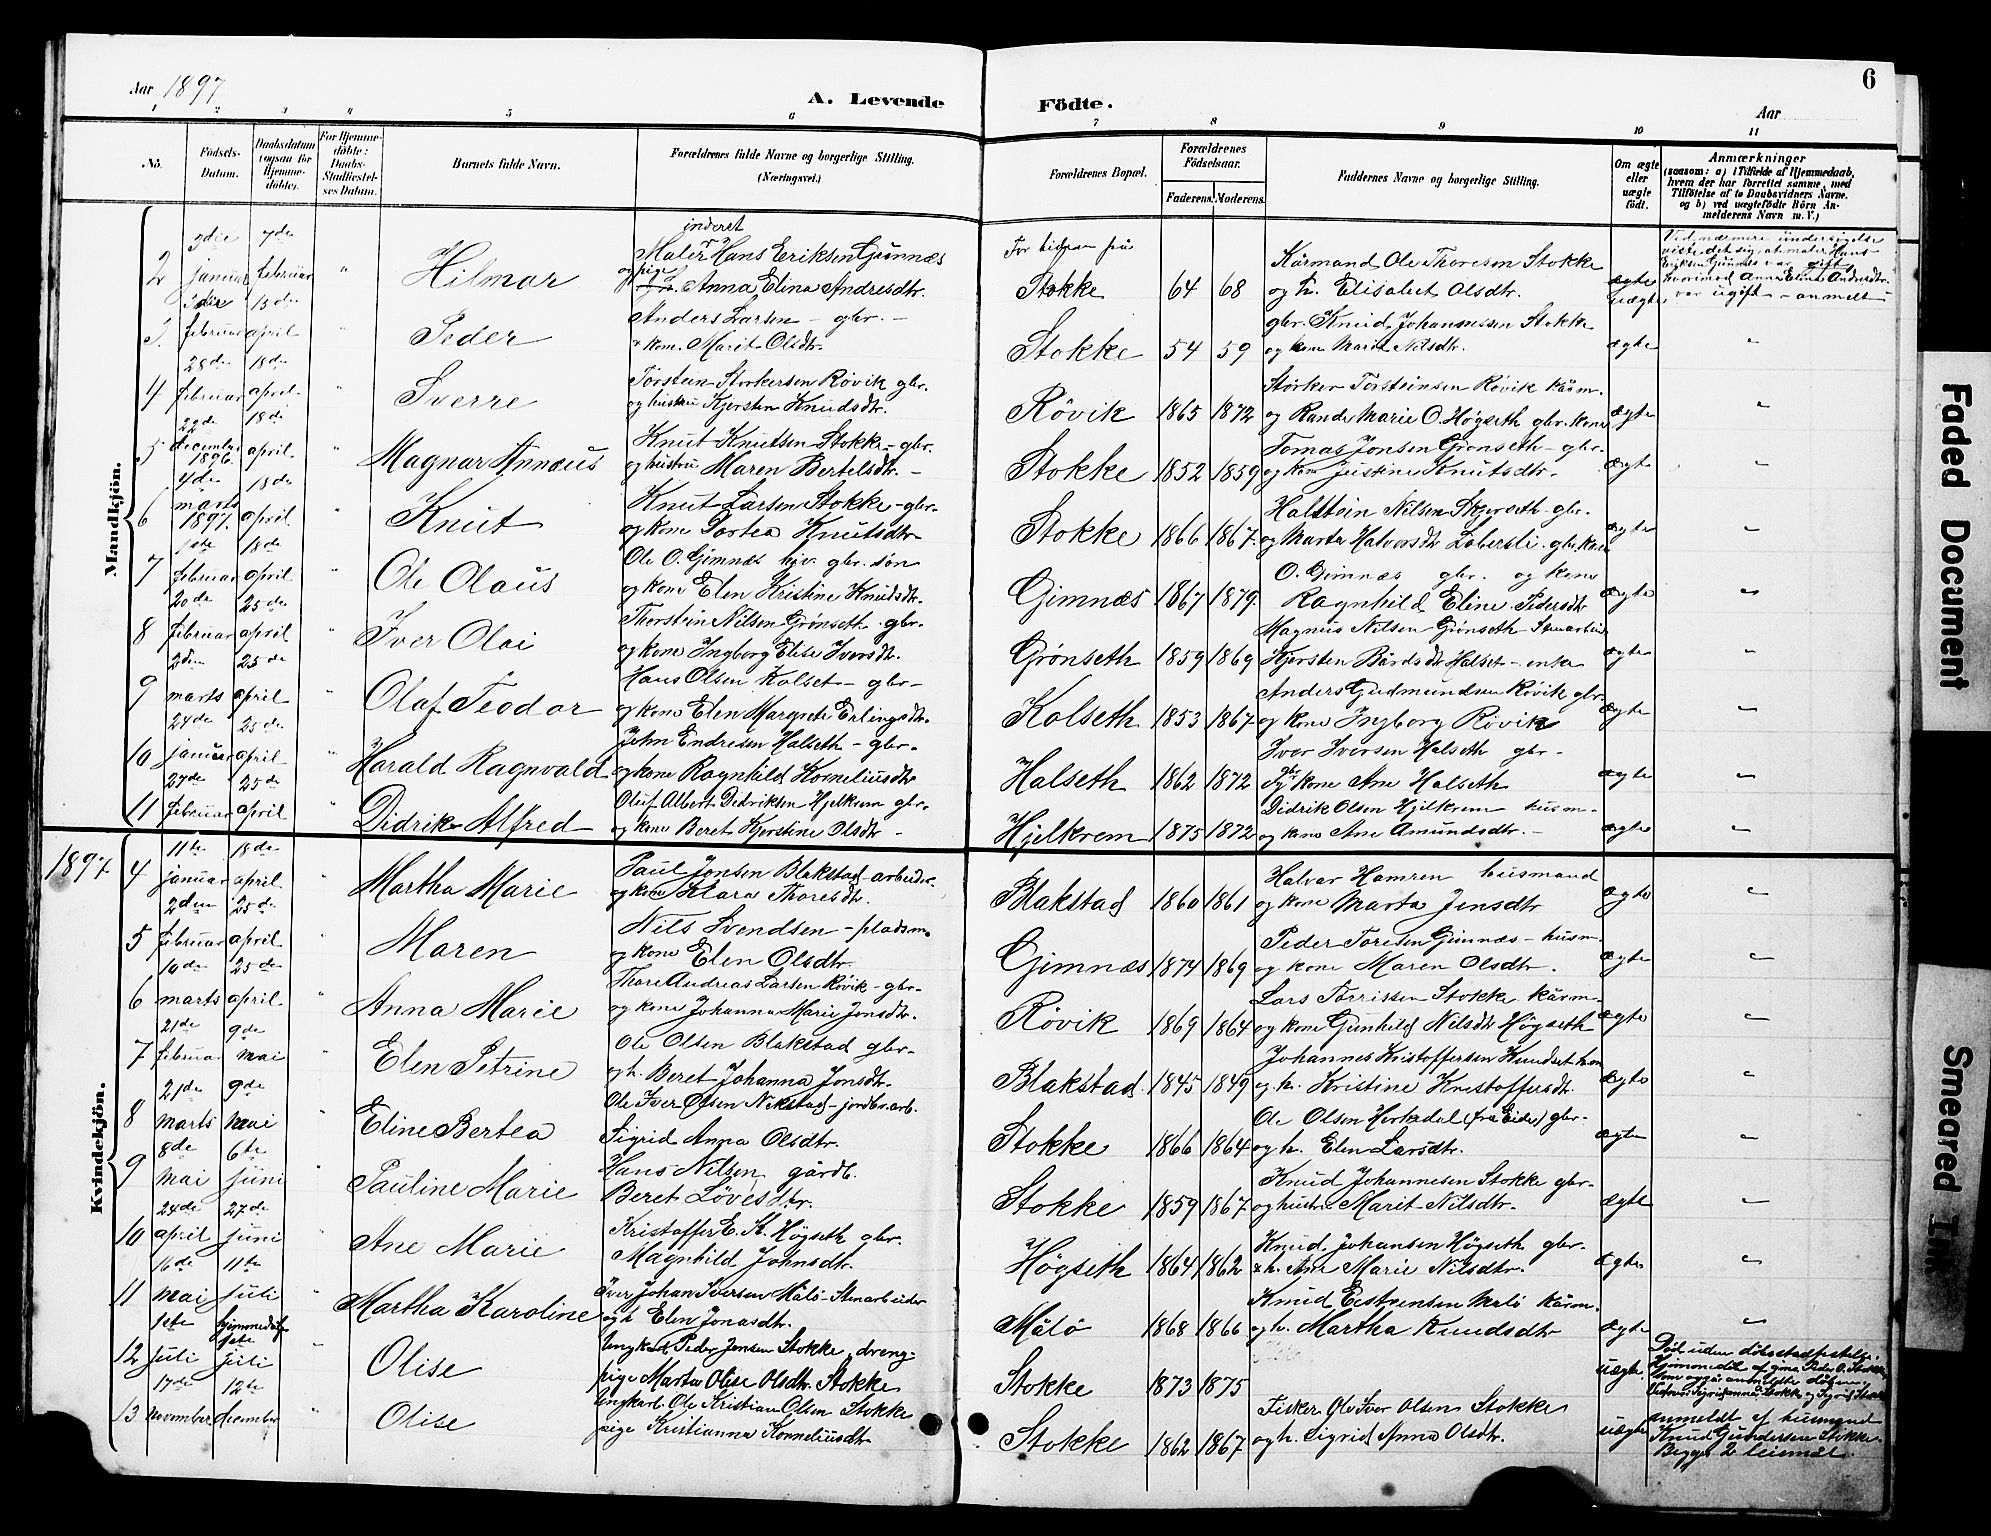 Aar 1897
A. Levende Födte.
Aar
6
1 2 3 4 5 6 7 8 9 10 11
No.
Födsels-Datum.
Daabsdatum (ogsaa for Hjemme-döbte).
For Hjemme-döbte: Daabs-Stadfæstel-ses Datum.
Barnets fulde Navn.
Forældrenes fulde Navne og borgerlige Stilling. (Næringsvei.)
Forældrenes Bopæl.
Forældrenes Födselsaar.
Faderens. Moderens.
Faddernes Navne og borgerlige Stilling.
Om ægte eller uægte födt.
Anmærkninger
(saasom: a) i Tilfælde af Hjemmedaab, hvem der har forrettet samme, med Tilföielse af to Daabsvidners Navne, og b) ved uægtefödte Börn An-melderens Navn m. V.)
Mandkjön.
2 3die januar 7de februar " Hilmar
inderst
Maler Hans Eriksen Gimnæs
og pige Anna Elina Andresdtr.
For tiden på Stokke 64 68
Kårmand Ole Thoresen Stokke
og h. Elisabet Olsdtr.
ægte uægte
Ved nærmere undersøgelse
viste det sig, at maler Hans
Eriksen Gimnæs var gift,
hvorimod Anne Eline Andersdtr.
var ugift - anmeldt
3. 3die februar 15de april Peder
Anders Larsen - gbr. -
& kone Marit Olsdtr.
Stokke 54 59
gbr. Knud Johannessen Stokke
og kone Marit Nilsdtr.
ægte "
4 28de februar 18de april " Sverre
Torstein Storkersen Røvik gbr.
og hustru Kjersten Knudsdtr.
Røvik 1865 1872
Størker Torsteinsen Røvik kårm.
og Rande Marie O. Høgseth gbr. kone
ægte "
5 22de december 1896. 18de april " Magnar Annæus
Knut Knutsen Stokke - gbr.
og hustru Maren Bertelsdtr. -
Stokke 1852 1859
Tomas Jonsen Grønseth - gbr.
og kone Justine Knutsdtr.
ægte "
6 4de marts 1897. 18de april " Knut
Knut Larsen Stokke - gbr.
og kone Dortea Knutsdtr
Stokke 1866 1867.
Halstein Nilsen Skjerseth - gbr.
og Marta Halvorsdtr Lobersli. gbr. kone
ægte "
7 1ste februar 18de april Ole Olaus
Ole O. Gimnæs kjv. gbr. søn
og kone Elen Kristine Knudsdtr.
Gimnæs 1867 1879.
O. Gimnæs gbr. og kone
Ragnhild Eline Pedersdtr
ægte "
8 20de februar 25de april " Iver Olai
Thorstein Nilsen Grønseth gbr.
og kone Ingborg Elise Iversdtr.
Grønseth 1859 1869
Magnus Nilsen Grønseth Stenarbeid
Kjersten Bårdsdtr Halset - enke
ægte "
9 2den marts 25de april " Olaf Teodor
Hans Olsen Kolset - gbr -
og kone Elen Margrete Erlingsdtr.
Kolseth 1853 1867
Anders Gudmundsen Røvik gbr
og kone Ingborg Røvik
ægte "
10 24de januar 25de april " Harald Ragnvald
John Endresen Halseth - gbr.
og kone Ragnhild Korneliusdtr
Halseth 1862 1872
Iver Iversen Halseth gbr -
kone Ane Halseth
ægte "
11 27de februar 25de april " Didrik Alfred
Oluf Albert Didriksen Hjelkrem gbr.
og kone Beret Kjerstine Olsdtr -
Hjelkrem 1875 1872
Didrik Olsen Hjelkrem husm -
og kone Ane Amundsdtr. -
ægte "
1897.
Kvindekjön.
4 11te januar 18de april " Martha Marie
Paul Jonsen Blakstad - arbeider.
og kone Klara Thoresdtr.
Blakstad 1860 1861
Halvar Hamren husmand
og kone Marta Jensdtr
ægte "
5 2den februar 25de april Maren
Nils Svendsen - pladsm.
og kone Elen Olsdtr.
Gimnæs 1874 1869
Peder Toresen Gimnæs - husm.
og kone Maren Olsdtr.
ægte "
6 10de marts 25de april " Anna Marie
Thore Andreas Larsen Røvik - gbr.
og kone Johanna Marie Jonsdtr.
Røvik 1869 1864
Lars Torrissen Stokke kårm.
og kone Gunhild Nilsdtr Høgseth
ægte "
7 21de februar 9de mai " Elen Petrine
Ole Olsen Blakstad gbr.
og h. Beret Johanna Jonsdtr.
Blakstad. 1845 1849
Johannes Kristoffersen
og h. Kristine Kristoffersdtr.
ægte "
8 21de marts 9de mai " Eline Bertea
Ole Iver Olsen - jordbr. arb.
Sigrid Anna Olsdtr.
Stokke 1866 1864
Ole Olsen (fra Eide) gbr.
og h. Elen Larsdtr.
ægte "
9 8de mai 6te juni Pauline Marie
Hans Nilsen gårdb.
Beret Løvesdtr.
Stokke 1859 1867
Knud Johannesen Stokke gbr.
og hustru Marit Nilsdtr.
ægte "
10 24de april 27de juni " Ane Marie
Kristoffer E. St. Høgseth gbr.
Magnhild Johnsdtr.
Høgseth 1864 1862
Knud Johansen Høgseth gbr.
& h. Ane Marie Nilsdtr.
ægte "
11 16de mai 11te juli Martha Karoline
Iver Johan Iversen Målø - Stenarbeider
og h Elen Jonasdtr.
Målø 1868 1866
Knud Eistensen Målø kårm.
og h. Martha Knudsdtr
ægte "
12 1ste juli hjemmedøbt 1ste juli " Olise
Ungkarl Peder Jensen Stokke, dreng-
pige Marta Olise Olsdtr. Stokke
Stokke 1873 1875
uægte
Død uden dåbsstadfestelse.
Hjemmedøbt af Peder O. Stokke,
som også anmeldte dåben,
Sigrid Anna Stokke og Sigrid Stokke
13 17de november 12te december Olise
Ungkarl Ole Kristian Olsen Stokke
pige Kristianna Korneliusdtr
Stokke 1862 1867
Fisker Ole Iver Olsen Stokke
og h. Sigrid Anna Olsdtr.
uægte
anmeldt af husmand
Knud Gundersen Stokke.
Begges 2 leiemål.
Faded Document
Smeared Ink